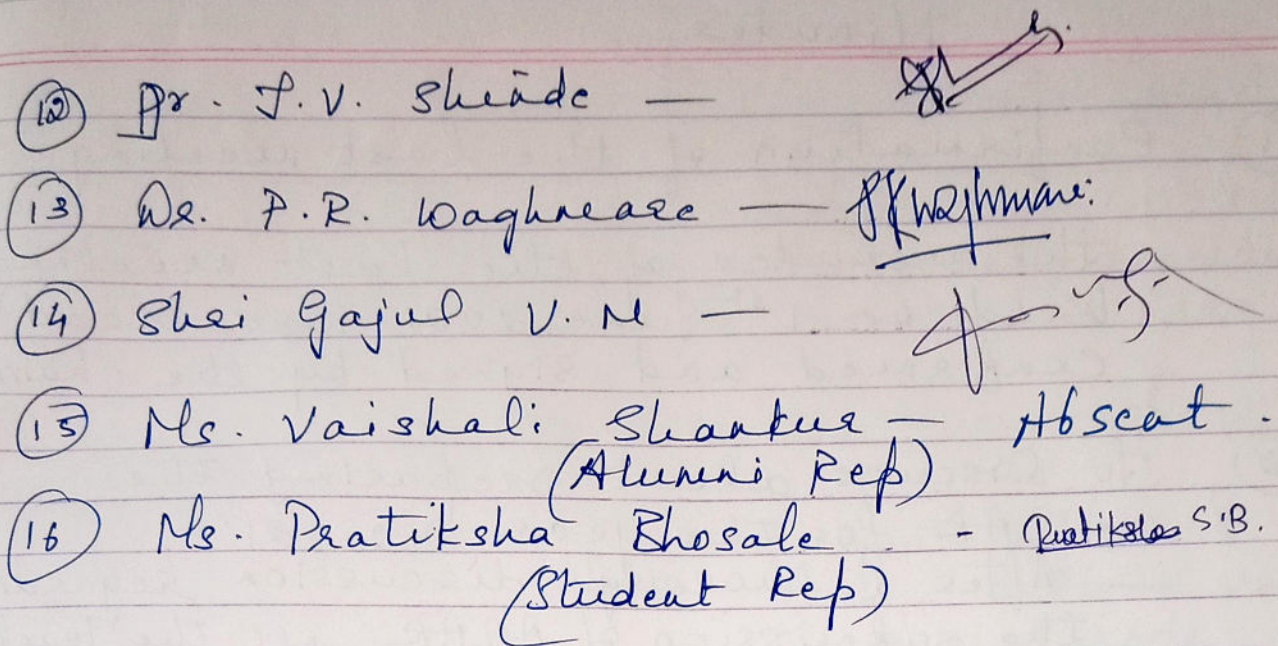 12 Dr. J.V. Shinde —
13 Dr. P.R. Waghmare — PRWaghmare.
14 Shri Gajul V. N —
15 Ms. Vaishali Shankur — Absent.
(Alumni Rep)
16 Ms. Pratiksha Bhosale - Pratiksha S.B.
(Student Rep)